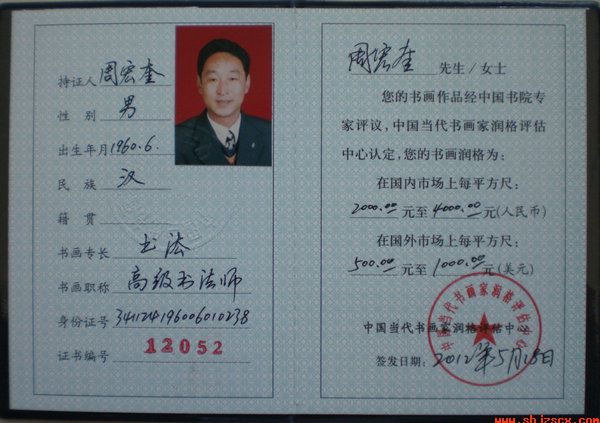 持证人 周宏奎
性别 男
出生年月 1960.6.
民族 汉
籍贯
书画专长 书法
书画职称 高级书法师
身份证号 341241196006010238
证书编号 12052
周宏奎 先生/女士
您的书画作品经中国书院专
家评议，中国当代书画家润格评估
中心认定，您的书画润格为：
在国内市场上每平方尺：
2000.00 元至 4000.00 元(人民币)
在国外市场上每平方尺：
500.00 元至 1000.00 元(美元)
中国当代书画家润格评估中心
中国当代书画家润格评估中心
签发日期：2012年5月28日
www.shjzscx.com